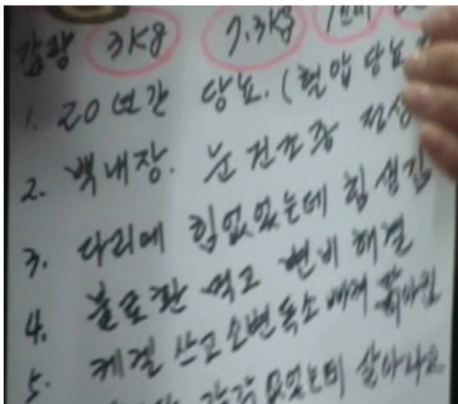 감량 3Kg 7.3Kg
1. 20년간 당뇨. (혈압 당뇨
2. 백내장. 눈 건조증 정상
3. 다리에 힘없었는데 힘 생김
4. 불로환 먹고 변비 해결
5. 케켈 산고 소변독소 빠져
감각 없었는데 살아나고